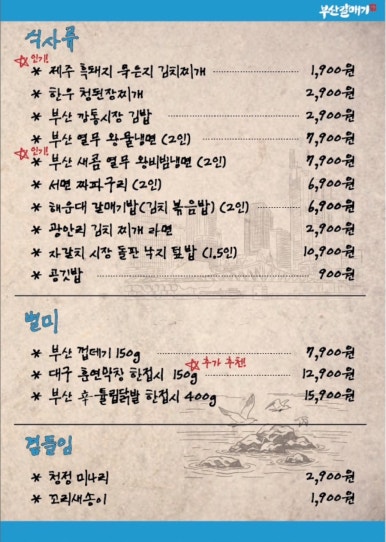 부산갈매기
식사류
인기!
* 제주 흑돼지 묵은지 김치찌개 1,900원
* 한우 청된장찌개 2,900원
* 부산 깡통시장 김밥 2,900원
* 부산 열무 왕물냉면 (2인) 7,900원
인기!
* 부산 새콤 열무 왕비빔냉면 (2인) 7,900원
* 서면 짜파구리 (2인) 6,900원
* 해운대 갈매기밥(김치 볶음밥) (2인) 6,900원
* 광안리 김치 찌개 라면 2,900원
* 자갈치 시장 돌판 낙지 덮밥 (1.5인) 10,900원
* 공깃밥 900원
별미
* 부산 껍데기 150g 7,900원
추가 추천!
* 대구 훈연막창 한접시 150g 12,900원
* 부산 후 튤립닭발 한접시 400g 15,900원
곁들임
* 청정 미나리 2,900원
* 꼬리새송이 1,900원